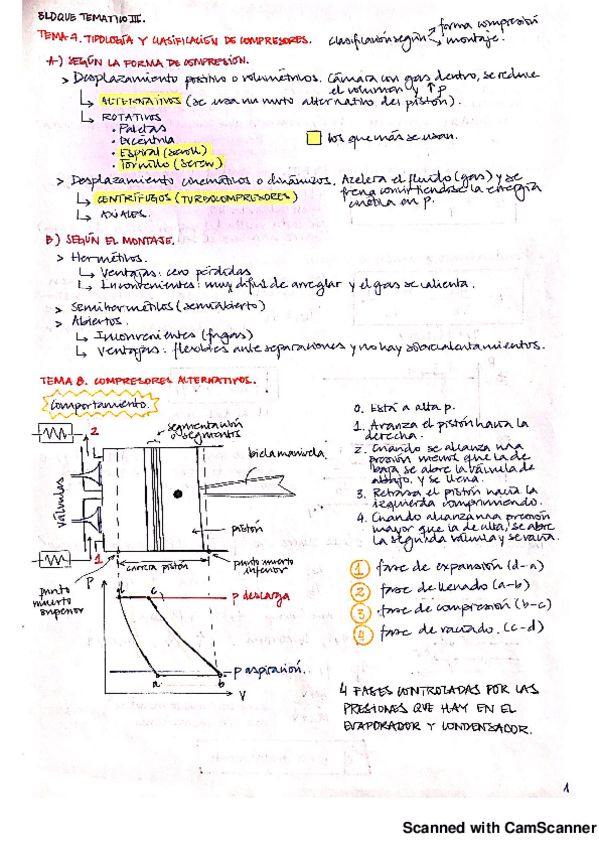 BLOQUE TEMÁTICO III.
TEMA 7. TIPOLOGÍA Y CLASIFICACIÓN DE COMPRESORES. clasificación según forma compresión
montaje.
A) SEGÚN LA FORMA DE COMPRESIÓN.
> Desplazamiento positivo o volumétricos. Cámara con gas dentro, se reduce
el volumen y ↑p
↳ ALTERNATIVOS (se usa un mvto alternativo del pistón).
↳ ROTATIVOS
• Paletas
• Excéntrica
• Espiral (scroll)
• Tornillo (screw)
los que más se usan.
> Desplazamiento cinemáticos o dinámicos. Acelera el fluido (gas) y se
frena convirtiéndose la energía
cinética en p.
↳ CENTRÍFUGOS (TURBOCOMPRESORES)
↳ AXIALES.
B) SEGÚN EL MONTAJE.
> Herméticos.
↳ Ventajas: cero pérdidas
↳ Inconvenientes: muy difícil de arreglar y el gas se calienta.
> Semiherméticos (semiabierto)
> Abiertos.
↳ Inconvenientes (fugas)
↳ Ventajas: flexibles ante separaciones y no hay sobrecalentamientos.
TEMA 8. COMPRESORES ALTERNATIVOS.
Comportamiento.
0. Está a alta p.
1. Avanza el pistón hacia la
derecha.
2. Cuando se alcanza una
presión menos que la de
baja se abre la válvula de
abajo, y se llena.
3. Retrasa el pistón hacia la
izquierda comprimiendo.
4. Cuando alcanza una presión
mayor que la de alta, se abre
la segunda válvula y se vacía.
2
segmentación
o segmentos
biela manivela.
válvulas
pistón
1
carrera pistón
punto muerto
inferior
punto
muerto
superior
P
d
c
p descarga
a
b
p aspiración.
V
1 fase de expansión (d-a)
2 fase de llenado (a-b)
3 fase de compresión (b-c)
4 fase de vaciado. (c-d)
4 FASES CONTROLADAS POR LAS
PRESIONES QUE HAY EN EL
EVAPORADOR Y CONDENSADOR.
1
Scanned with CamScanner